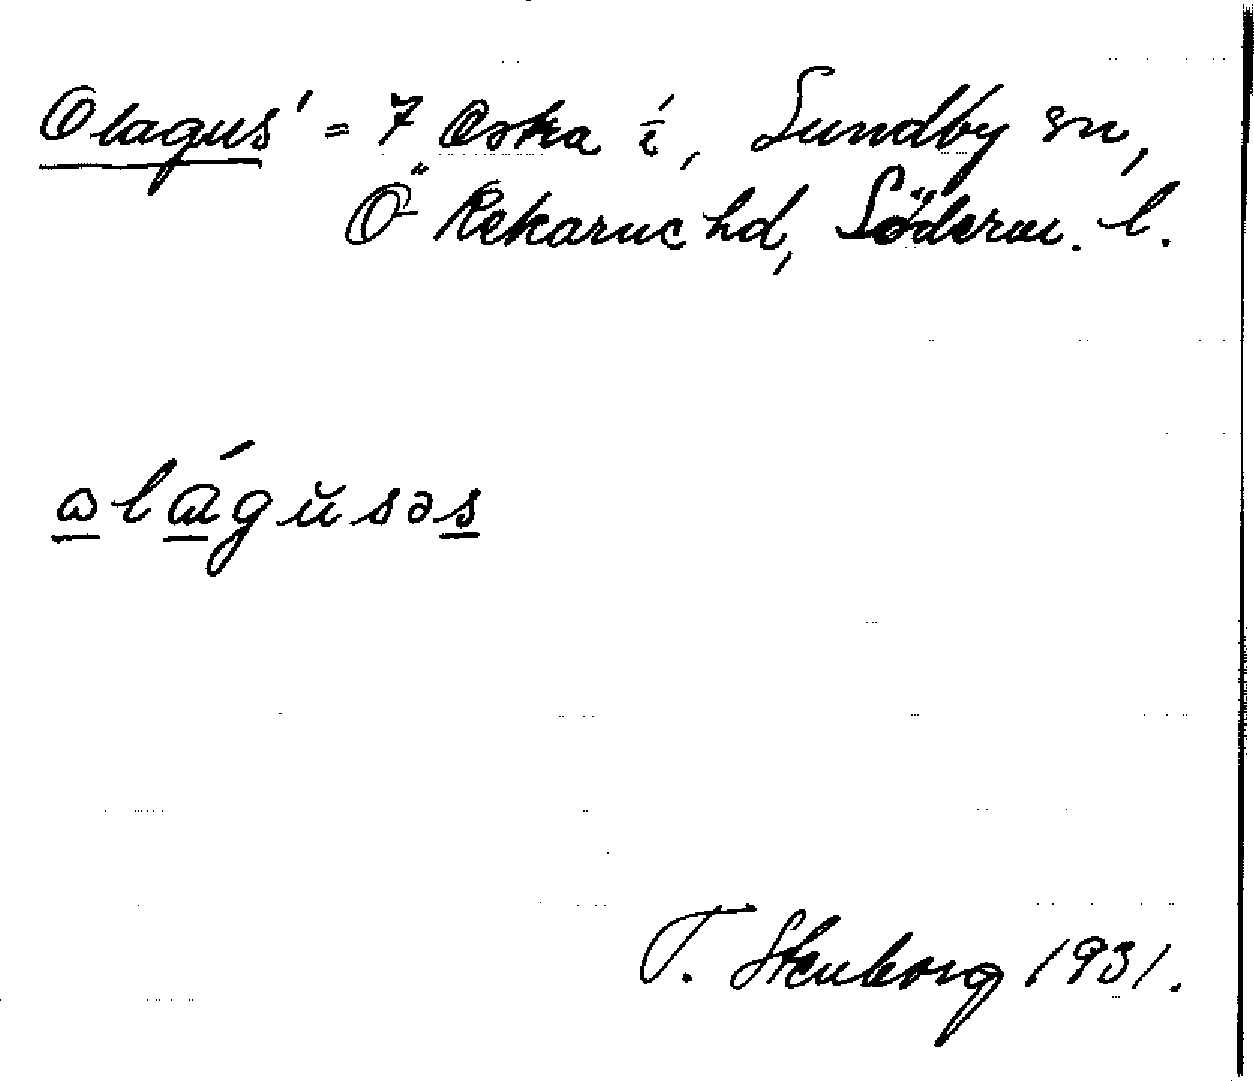 Olagus' = 7 Oska í, Sundby sn,
Ö Rekarne hd, Söderm. l.
ɷlágŭsəs
T. Stenborg 1931.